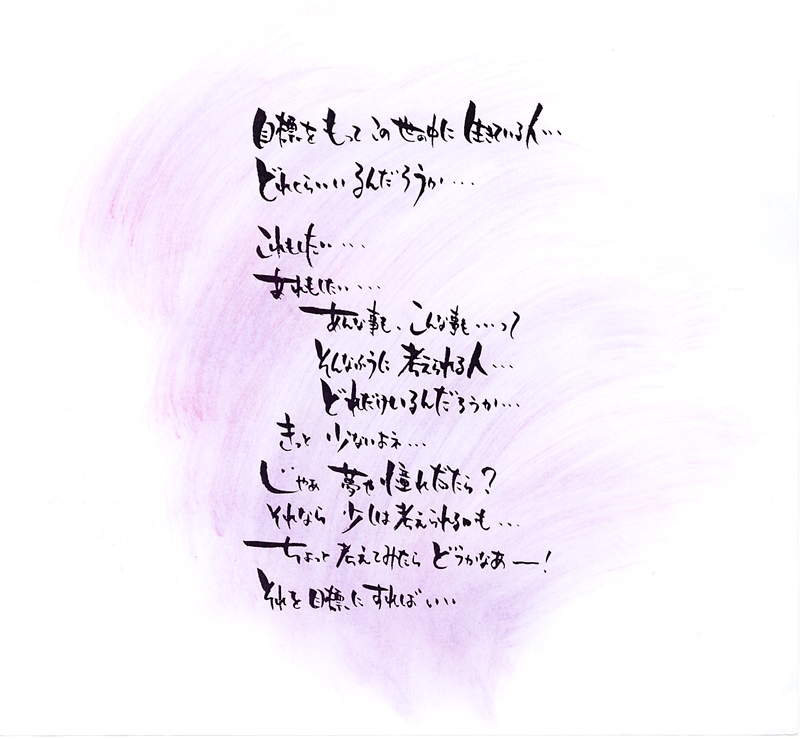 目標をもって この世の中に 生きている人…
どれくらいいるんだろうか…
これもしたい…
あれもしたい…
あんな事も、こんな事も…って
そんなふうに 考えられる人…
どれだけいるんだろうか…
きっと 少ないよネ…
じゃあ 夢や憧れだったら?
それなら 少しは考えられるかも…
ちょっと 考えてみたら どうかなあー!
それを 目標に すれば いい…